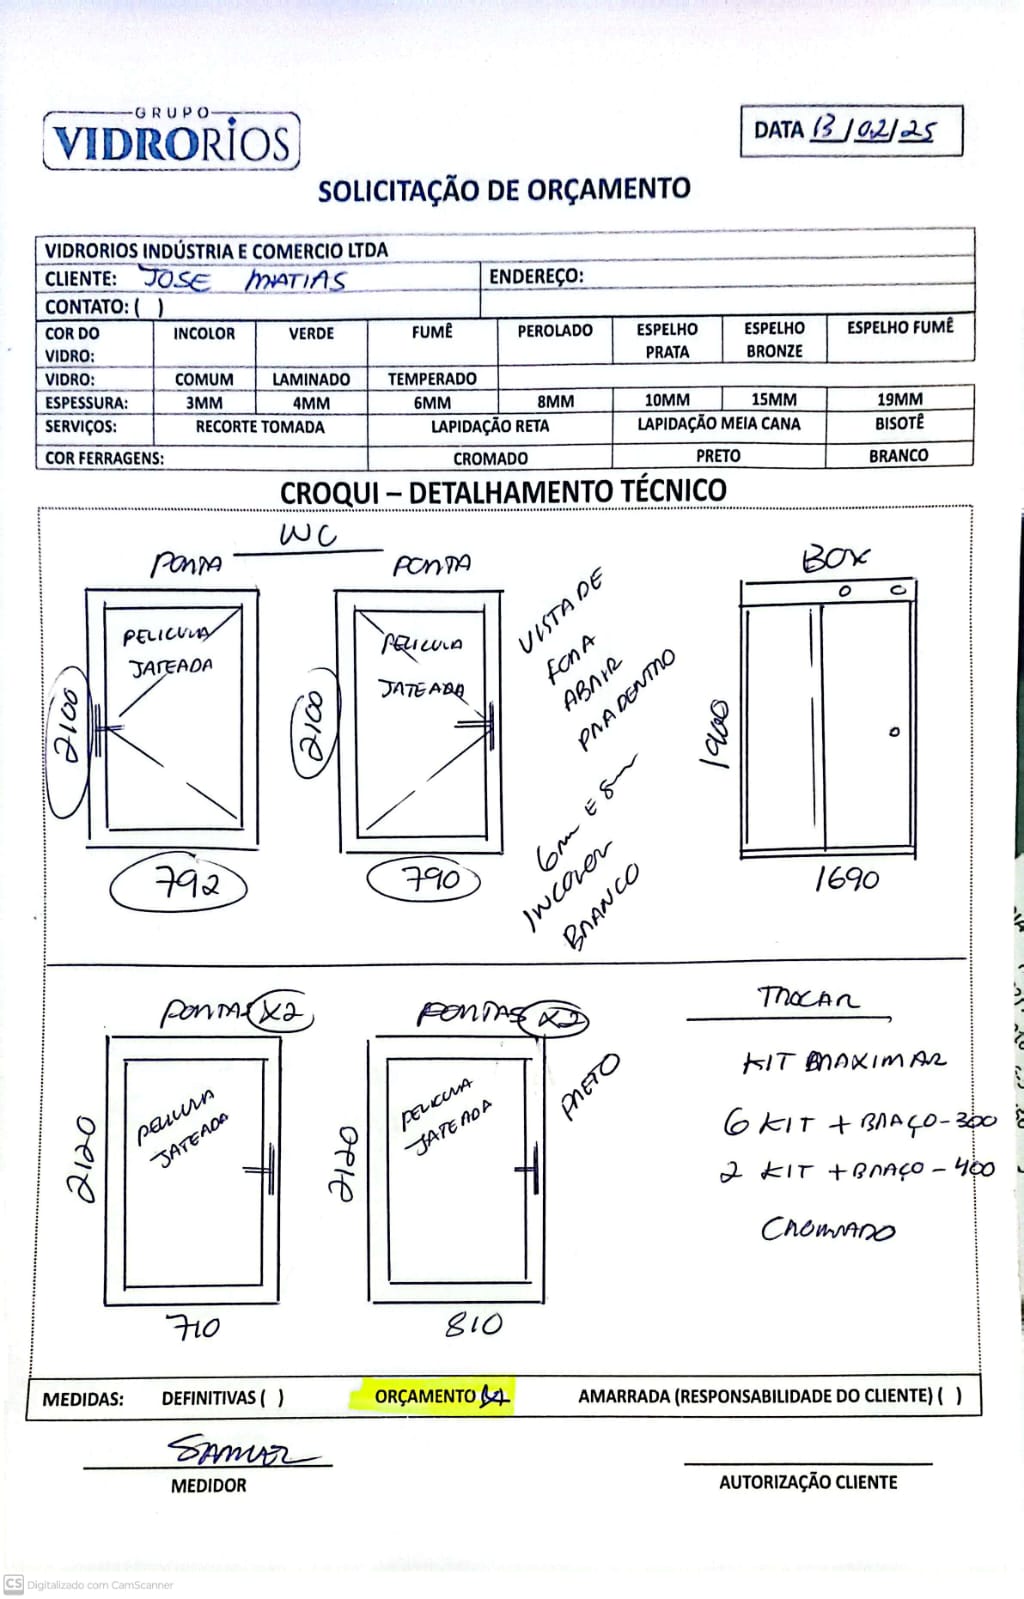 GRUPO
VIDRORIOS
DATA 13/02/25
SOLICITAÇÃO DE ORÇAMENTO
VIDRORIOS INDÚSTRIA E COMERCIO LTDA
CLIENTE: JOSE MATIAS
ENDEREÇO:
CONTATO: ( )
COR DO VIDRO: INCOLOR VERDE FUMÊ PEROLADO ESPELHO PRATA ESPELHO BRONZE ESPELHO FUMÊ
VIDRO: COMUM LAMINADO TEMPERADO
ESPESSURA: 3MM 4MM 6MM 8MM 10MM 15MM 19MM
SERVIÇOS: RECORTE TOMADA LAPIDAÇÃO RETA LAPIDAÇÃO MEIA CANA BISOTÊ
COR FERRAGENS: CROMADO PRETO BRANCO
CROQUI – DETALHAMENTO TÉCNICO
WC
PORTA
PELICULA
JATEADA
2100
792
PORTA
PELICULA
JATEADA
2100
790
VISTA DE
FORA
ABRIR
PRA DENTRO
6mm E 8mm
INCOLOR
BRANCO
BOX
1900
1690
PORTAS X2
PELICULA
JATEADA
2120
710
PORTAS X2
PELICULA
JATEADA
2120
810
PRETO
TROCAR
KIT MAXIMAR
6 KIT + BRAÇO-300
2 KIT + BRAÇO - 400
CROMADO
MEDIDAS: DEFINITIVAS ( ) ORÇAMENTO (X) AMARRADA (RESPONSABILIDADE DO CLIENTE) ( )
SAMUEL
MEDIDOR
AUTORIZAÇÃO CLIENTE
CS Digitalizado com CamScanner